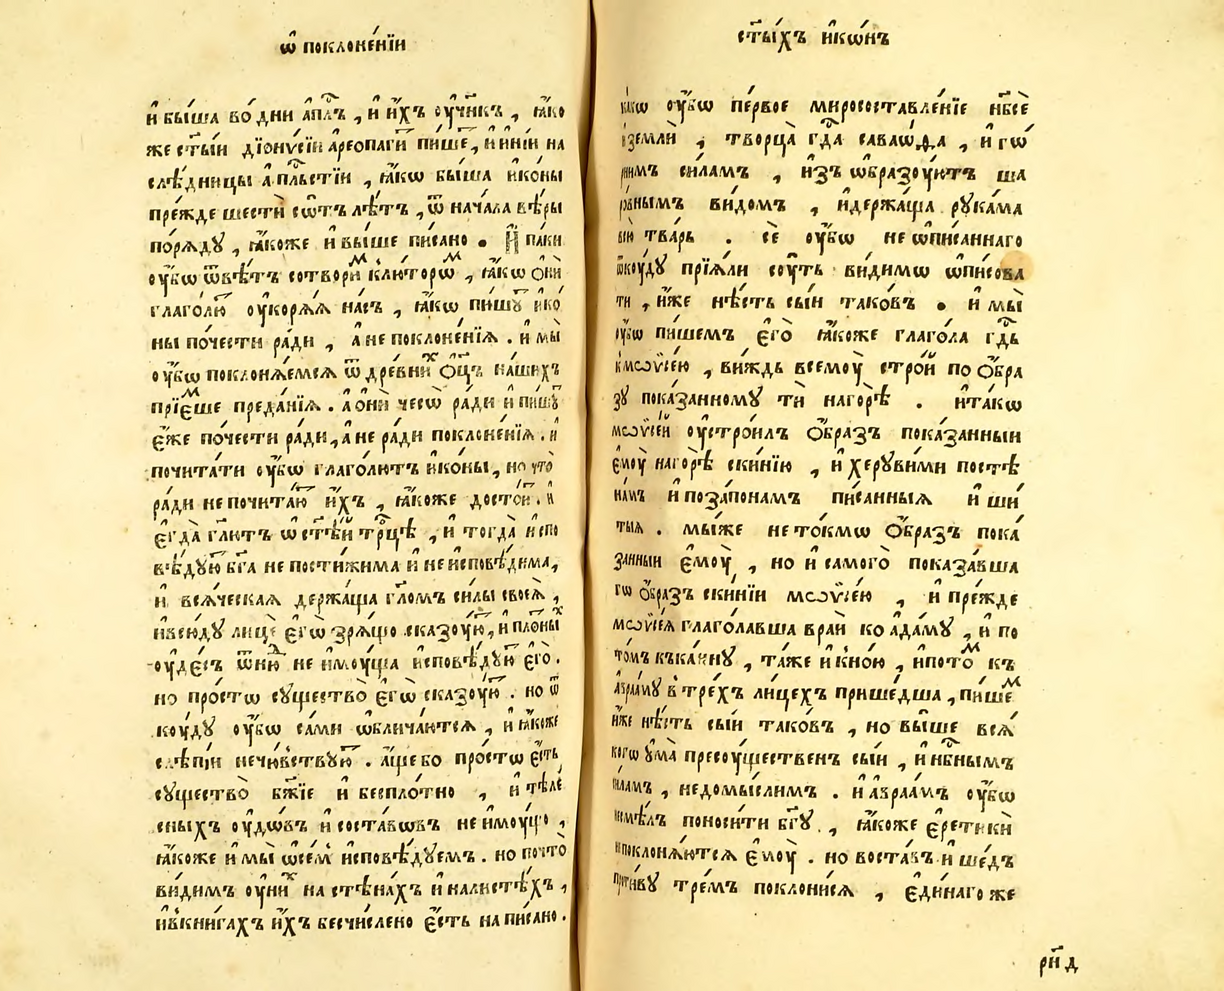 ѡ҆ поклоне́нїи
и҆ бы́ша во́ дни а҆пл҃ъ , и҆ и҆́хъ ᲂу҆чн҃къ , ꙗ҆́ко
же ст҃ы́и дїони́сїи а҆реопаги҃ пи́ше , и҆ и҆ні́и на
слѣ́дницы а҆пⷭ҇льстїи , ꙗ҆́кѡ бы́ша и҆ко́ны
пре́жде шестѝ сѡ́тъ лѣ́тъ , ѿ нача́ла вѣ́ры
поря́ду , ꙗ҆́коже и҆ вы́ше пи́сано . И҆ па́ки
ᲂу҆́бѡ ѿвѣ́тъ сотвориⷨ клю́торѡⷨ , ꙗ҆́кѡ ѻ҆нѝ
глаго́лю҃ ᲂу҆коря́ѧ на́съ , ꙗ҆́кѡ пи́шꙋ҃ и҆ко́
ны по́чести ра́ди , а҆ не поклоне́нїѧ . и҆ мы̀
ᲂу҆́бѡ поклоня́емсѧ ѿ дре́вниⷯ ѻ҆ц҃ъ на́шихъ
прїе́мше преда́нїѧ . а҆ ѻ҆нѝ чесѡ̀ ра́ди и҆ пи́шꙋ҃
є҆́же по́чести ра́ди , а҆ не ра́ди поклоне́нїѧ . и҆
почита́ти ᲂу҆́бѡ глаго́лютъ и҆ко́ны , но что̀
ра́ди не почита́ю҃ и҆́хъ , ꙗ҆́коже досто́и҃ . и҆
є҆гда̀ гл҃ютъ ѡ҆ ст҃ѣ́й трⷪ҇цѣ , и҆ тогда̀ и҆спо
вѣ́дꙋю҃ бг҃а не постижи́ма и҆ неисповѣ́дима ,
и҆ всѧ́ческаѧ держа́ща гл҃омъ си́лы своеѧ̀ ,
и҆ всю́дꙋ лицѐ є҆гѡ̀ зря́що сказꙋ́ю҃ , и҆ пло́ныⷯ
ᲂу҆де́съ ѿнюⷣ не и҆мꙋ́ща и҆сповѣ́дꙋю҃ є҆го̀ .
но про́стѡ сꙋщество̀ є҆гѡ̀ сказꙋ́ю҃ . но ѿ
кꙋ́дꙋ ᲂу҆́бѡ са́ми ѡ҆блича́ютсѧ , и҆ ꙗ҆́коже
слѣпі́и нечю́вствꙋю҃ . а҆́ще бо про́стѡ є҆́сть
сꙋщество̀ бж҃їе и҆ беспло́тно , и҆ тѣле́
сныхъ ᲂу҆́дѡвъ и҆ соста́вѡвъ не и҆мꙋ́що ,
ꙗ҆́коже и҆ мы̀ ѡ҆ се́мъ и҆сповѣ́дꙋемъ . но почто̀
ви́димъ ᲂу҆ ни́ⷯ на стѣна́хъ и҆ на листѣ́хъ ,
и҆ в кни́гахъ и҆́хъ бесчи́слено є҆́сть напи́сано .
ст҃ы́хъ и҆кѡ́нъ
ка́кѡ ᲂу҆́бѡ пе́рвое миросоставле́нїе нб҃сѐ
и҆ землѝ , творца̀ гдⷭ҇а саваѡ́ѳа , и҆ гѡ́
рнимъ си́ламъ , и҆зъ ѡ҆бразꙋ́ютъ ша
ро́внымъ ви́домъ , и҆ держа́ща рꙋка́ма
всю̀ тва́рь . сѐ ᲂу҆́бѡ не ѡ҆пи́саннаго
ѿкꙋ́дꙋ прїя́ли сꙋ́ть ви́димѡ ѡ҆писова́
ти , и҆́же нѣ́сть сы́и тако́въ . и҆ мы̀
ᲂу҆́бѡ пи́шемъ є҆го̀ ꙗ҆́коже глаго́ла гдⷭ҇ь
к мѡѷсе́ю , ви́ждь всемꙋ̀ стро́й по ѻ҆́бра
зꙋ пока́занномꙋ тѝ на горѣ̀ . и҆ та́кѡ
мѡѷсе́й ᲂу҆стро́илъ ѻ҆́бразъ пока́занный
є҆мꙋ̀ на горѣ̀ ски́нїю , и҆ херꙋви́ми постѣ
на́мъ и҆ поза́понамъ пи́санныѧ и҆ ши́
тыѧ . мы́же не то́кмѡ ѻ҆́бразъ пока́
занный є҆мꙋ̀ , но и҆ самого̀ показа́вша
гѡ ѻ҆́бразъ ски́нїи мѡѷсе́ю , и҆ пре́жде
мѡѷсе́ѧ глаго́лавша в раѝ ко а҆да́мꙋ , и҆ по
то́мъ къ ка́инꙋ , та́же и҆ к но́ю , и҆ пото́ⷨ къ
а҆враа́мꙋ в тре́хъ ли́цехъ прише́дша , пи́шеⷨ
и҆́же нѣ́сть сы́и тако́въ , но вы́ше всѧ́
когѡ ᲂу҆ма̀ пресꙋ́щественъ сы́и , и҆ нбⷭ҇нымъ
си́ламъ , недомы́слимъ . и҆ а҆враа́мъ ᲂу҆́бѡ
не смѣ́лъ поноси́ти бг҃ꙋ , ꙗ҆́коже є҆ретикѝ
и҆ поклоня́ютсѧ є҆мꙋ̀ . но воста́въ и҆ ше́дъ
проти́вꙋ тре́мъ поклони́сѧ , є҆ди́наго же
рн҃д